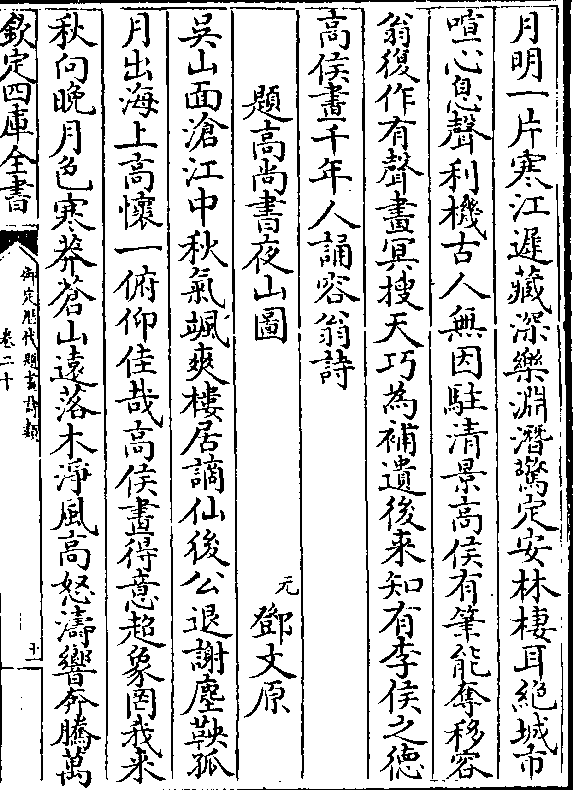 月明一片寒江遲藏深樂淵潛驚定安林棲耳絶城市
喧心息聲利機古人無因駐清景高侯有筆能奪移容
翁復作有聲畫冥搜天巧為補遺後来知有李侯之徳
高侯畫千年人誦容翁詩
題高尚書夜山圖
元 鄧文原
吳山面滄江中秋氣颯爽樓居謫仙後公退謝塵鞅孤
月出海上高懷一俯仰佳哉高侯畫得意超象罔我来
秋向晚月色寒莽蒼山遠落木淨風高怒濤響奔騰萬
欽定四庫全書
御定歴代題畫詩類
卷二十